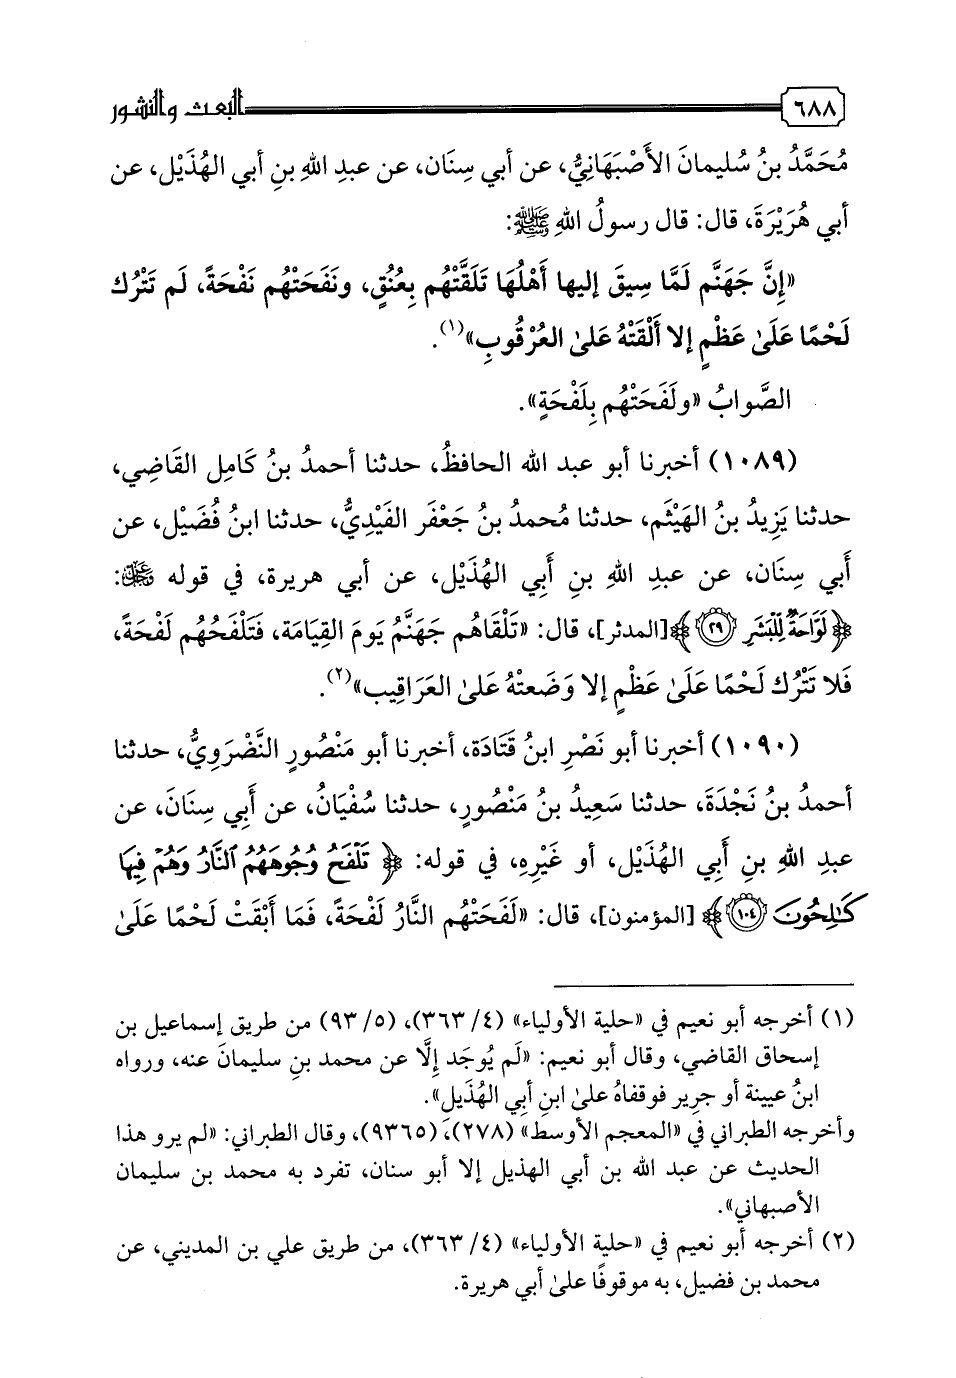 ٦٨٨ البعث والنشور
مُحَمَّدُ بنُ سُليمانَ الأَصْبَهَانِيُّ، عن أبي سِنَان، عن عبدِ اللهِ بنِ أبي الهُذَيْل، عن
أبي هُرَيْرَةَ، قال: قال رسولُ اللهِ ﷺ:
«إِنَّ جَهَنَّم لَمَّا سِيقَ إليها أَهْلُهَا تَلَقَّتْهُم بِعُنُقٍ، ونَفَحَتْهُم نَفْحَةً، لَم تَتْرُك
لَحْمًا عَلَىٰ عَظْمٍ إلا أَلْقَتْهُ عَلىٰ العُرْقُوبِ»(١).
الصَّوابُ «ولَفَحَتْهُم بِلَفْحَةٍ».
(١٠٨٩) أخبرنا أبو عبد الله الحافظُ، حدثنا أحمدُ بنُ كَامِل القَاضِي،
حدثنا يَزِيدُ بنُ الهَيْثَم، حدثنا مُحمدُ بنُ جَعْفَر الفَيْدِيُّ، حدثنا ابنُ فُضَيْل، عن
أَبي سِنَان، عن عبدِ اللهِ بنِ أَبِي الهُذَيْل، عن أبي هريرة، في قوله ﷿:
﴿لَوَّاحَةٌ لِّلْبَشَرِ ٢٩﴾ [المدثر]، قال: «تَلْقَاهُم جَهَنَّمُ يَومَ القِيَامَة، فَتَلْفَحُهُم لَفْحَةً،
فَلا تَتْرُك لَحْمًا عَلَىٰ عَظْمٍ إلا وَضَعتْهُ عَلىٰ العَرَاقِيب»(٢).
(١٠٩٠) أخبرنا أبو نَصْرِ ابنُ قَتَادَة، أخبرنا أبو مَنْصُورٍ النَّضْرَوِيُّ، حدثنا
أحمدُ بنُ نَجْدَةَ، حدثنا سَعِيدُ بنُ مَنْصُورٍ، حدثنا سُفْيَانُ، عن أَبِي سِنَانَ، عن
عبدِ اللهِ بنِ أَبِي الهُذَيْل، أو غَيْرِهِ، في قوله: ﴿تَلْفَحُ وُجُوهَهُمُ ٱلنَّارُ وَهُمْ فِيهَا
كَٰلِحُونَ ١٠٤﴾ [المؤمنون]، قال: «لَفَحَتْهُم النَّارُ لَفْحَةً، فَمَا أَبْقَتْ لَحْمًا عَلَىٰ
(١) أخرجه أبو نعيم في «حلية الأولياء» (٤/ ٣٦٣)، (٥/ ٩٣) من طريق إسماعيل بن
إسحاق القاضي، وقال أبو نعيم: «لَم يُوجَد إلَّا عن محمد بنِ سليمانَ عنه، ورواه
ابنُ عيينة أو جرِير فوقفاهُ علىٰ ابنِ أبِي الهُذَيل».
وأخرجه الطبراني في «المعجم الأوسط» (٢٧٨)، (٩٣٦٥)، وقال الطبراني: «لم يرو هذا
الحديث عن عبد الله بن أبي الهذيل إلا أبو سنان، تفرد به محمد بن سليمان
الأصبهاني».
(٢) أخرجه أبو نعيم في «حلية الأولياء» (٤/ ٣٦٣)، من طريق علي بن المديني، عن
محمد بن فضيل، به موقوفًا علىٰ أبي هريرة.